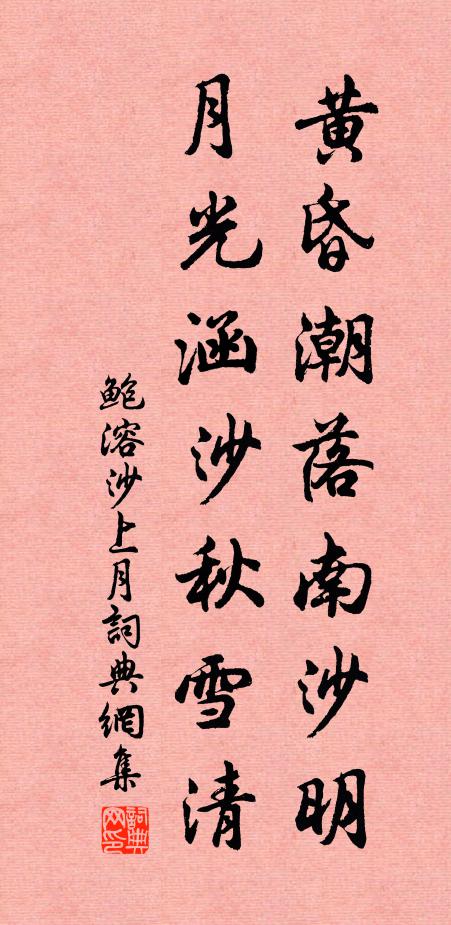 黄昏潮落南沙明
月光涵沙秋雪清
鲍溶沙上月詞典網集
詞典网印